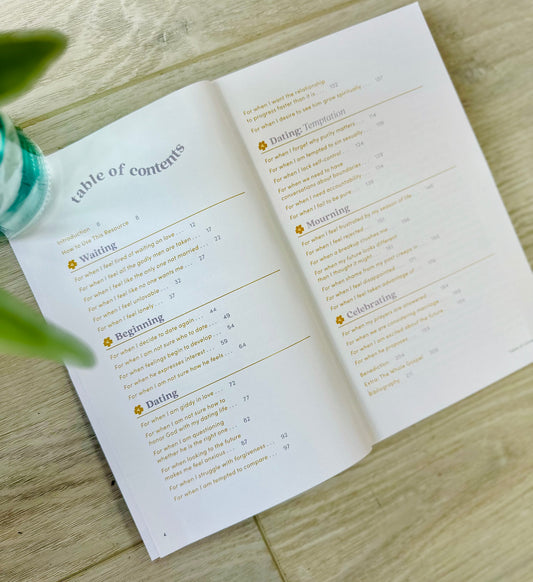 table of contents
Introduction 6
How to Use This Resource 8
Waiting
For when I feel tired of waiting on love . . . 12
For when I feel all the godly men are taken . . . 17
For when I feel like the only one not married . . . 22
For when I feel like no one wants me . . . 27
For when I feel unlovable . . . 32
For when I feel lonely . . . 37
Beginning
For when I decide to date again . . . 44
For when I am not sure who to date . . . 49
For when feelings begin to develop . . . 54
For when he expresses interest . . . 59
For when I am not sure how he feels . . . 64
Dating
For when I am giddy in love . . . 72
For when I am not sure how to
honor God with my dating life . . . 77
For when I am questioning
whether he is the right one . . . 82
For when looking to the future
makes me feel anxious . . . 87
For when I struggle with forgiveness . . . 92
For when I am tempted to compare . . . 97
4
For when I want the relationship
to progress faster than it is . . . 102
For when I desire to see him grow spiritually . . . 107
Dating: Temptation
For when I forget why purity matters . . . 114
For when I am tempted to sin sexually . . . 119
For when I lack self-control . . . 124
For when we need to have
conversations about boundaries . . . 129
For when I need accountability . . . 134
For when I fail to be pure . . . 139
Mourning
For when I feel frustrated by my season of life . . . 146
For when I feel rejected . . . 151
For when a breakup crushes me . . . 156
For when my future looks different
than I thought it might . . . 161
For when shame from my past creeps in
For when I feel disappointed . . .
For when I feel taken advantage of . . .
Celebrating
For when my prayers are answered . . . 184
For when we are considering marriage . . .
For when I am excited about the future . . .
For when he proposes
Benediction 204
Extra: The Whole Gospel
Bibliography 211